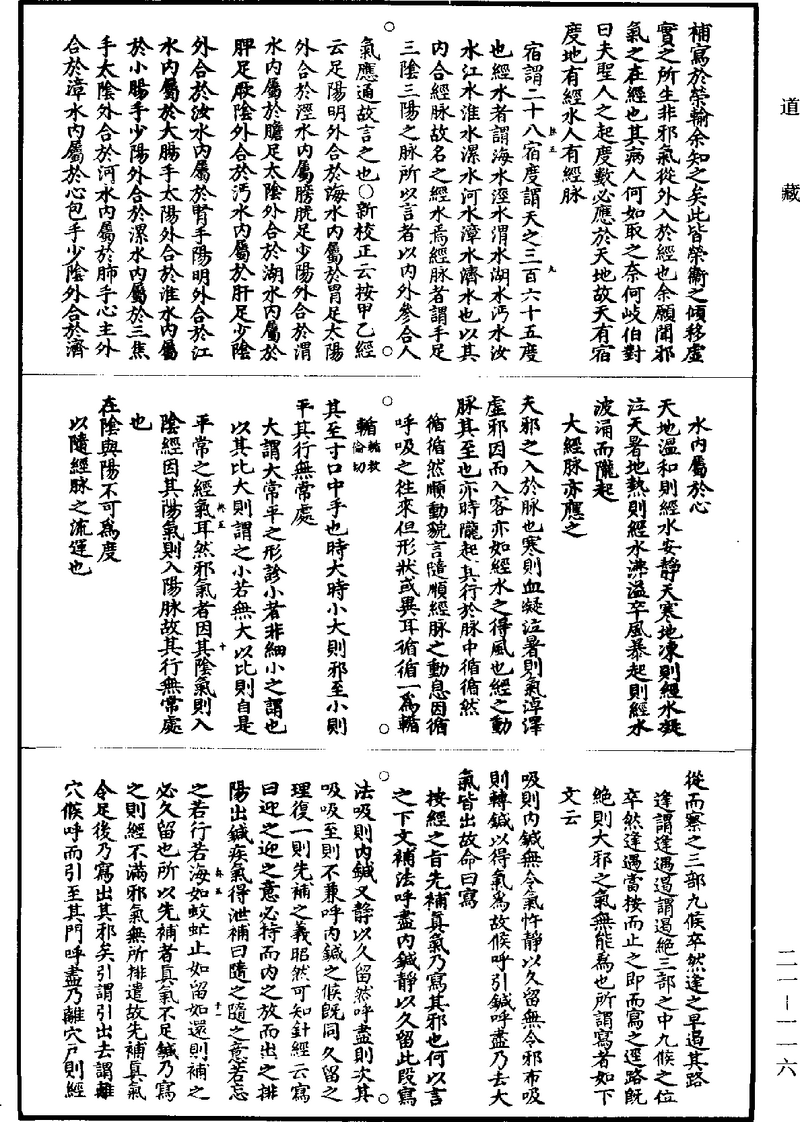 道藏
補寫於榮輸余知之矣此皆榮衛之傾移虛
實之所生非邪氣從外入於經也余願聞邪
氣之在經也其病人何如取之奈何岐伯對
曰夫聖人之起度數必應於天地故天有宿
度地有經水人有經脉
宿謂二十八宿度謂天之三百六十五度
也經水者謂海水涇水渭水湖水沔水汝
水江水淮水漯水河水漳水濟水也以其
內合經脉故名之經水焉經脉者謂手足
三陰三陽之脉所以言者以內外參合人
氣應通故言之也○新校正云按甲乙經
云足陽明外合於海水內屬於胃足太陽
外合於涇水內屬膀胱足少陽外合於渭
水內屬於膽足太陰外合於湖水內屬於
脾足厥陰外合於沔水內屬於肝足少陰
外合於汝水內屬於腎手陽明外合於江
水內屬於大腸手太陽外合於淮水內屬
於小腸手少陽外合於漯水內屬於三焦
手太陰外合於河水內屬於肺手心主外
合於漳水內屬於心包手少陰外合於濟
水內屬於心
天地溫和則經水安靜天寒地凍則經水凝
泣天暑地熱則經水沸溢卒風暴起則經水
波涌而隴起
大經脉亦應之
夫邪之入於脉也寒則血凝泣暑則氣淖澤
虛邪因而入客亦如經水之得風也經之動
脉其至也亦時隴起其行於脉中循循然
循循然順動貌言隨順經脉之動息因循
呼吸之往來但形狀或異耳循循一為輴
輴
輴敕
倫切
其至寸口中手也時大時小大則邪至小則
平其行無常處
大謂大常平之形診小者非細小之謂也
以其比大則謂之小若無大以比則自是
平常之經氣耳然邪氣者因其陰氣則入
陰經因其陽氣則入陽脉故其行無常處
也
在陰與陽不可為度
以隨經脉之流運也
從而察之三部九候卒然逢之早遏其路
逢謂逢遇遏謂遏絕三部之中九候之位
卒然逢遇當按而止之即而寫之逕路既
絕則大邪之氣無能為也所謂寫者如下
文云
吸則內鍼無令氣忤靜以久留無令邪布吸
則轉鍼以得氣為故候呼引鍼呼盡乃去大
氣皆出故命曰寫
按經之首先補真氣乃寫其邪也何以言
之下文補法呼盡內鍼靜以久留此段寫
法吸則內鍼又靜以久留然呼盡則次其
吸吸至則不兼呼內鍼之候既同久留之
理復一則先補之義昭然可知針經云寫
曰迎之迎之意必持而內之放而出之排
陽出鍼疾氣得泄補曰隨之隨之意若忘
之若行若海如蚊虻止如留如還則補之
必久留也所以先補者真氣不足鍼乃寫
之則經不滿邪氣無所排遣故先補真氣
令足後乃寫出其邪矣引謂引出去謂離
穴候呼而引至其門呼盡乃離穴戶則經
二一—一一六